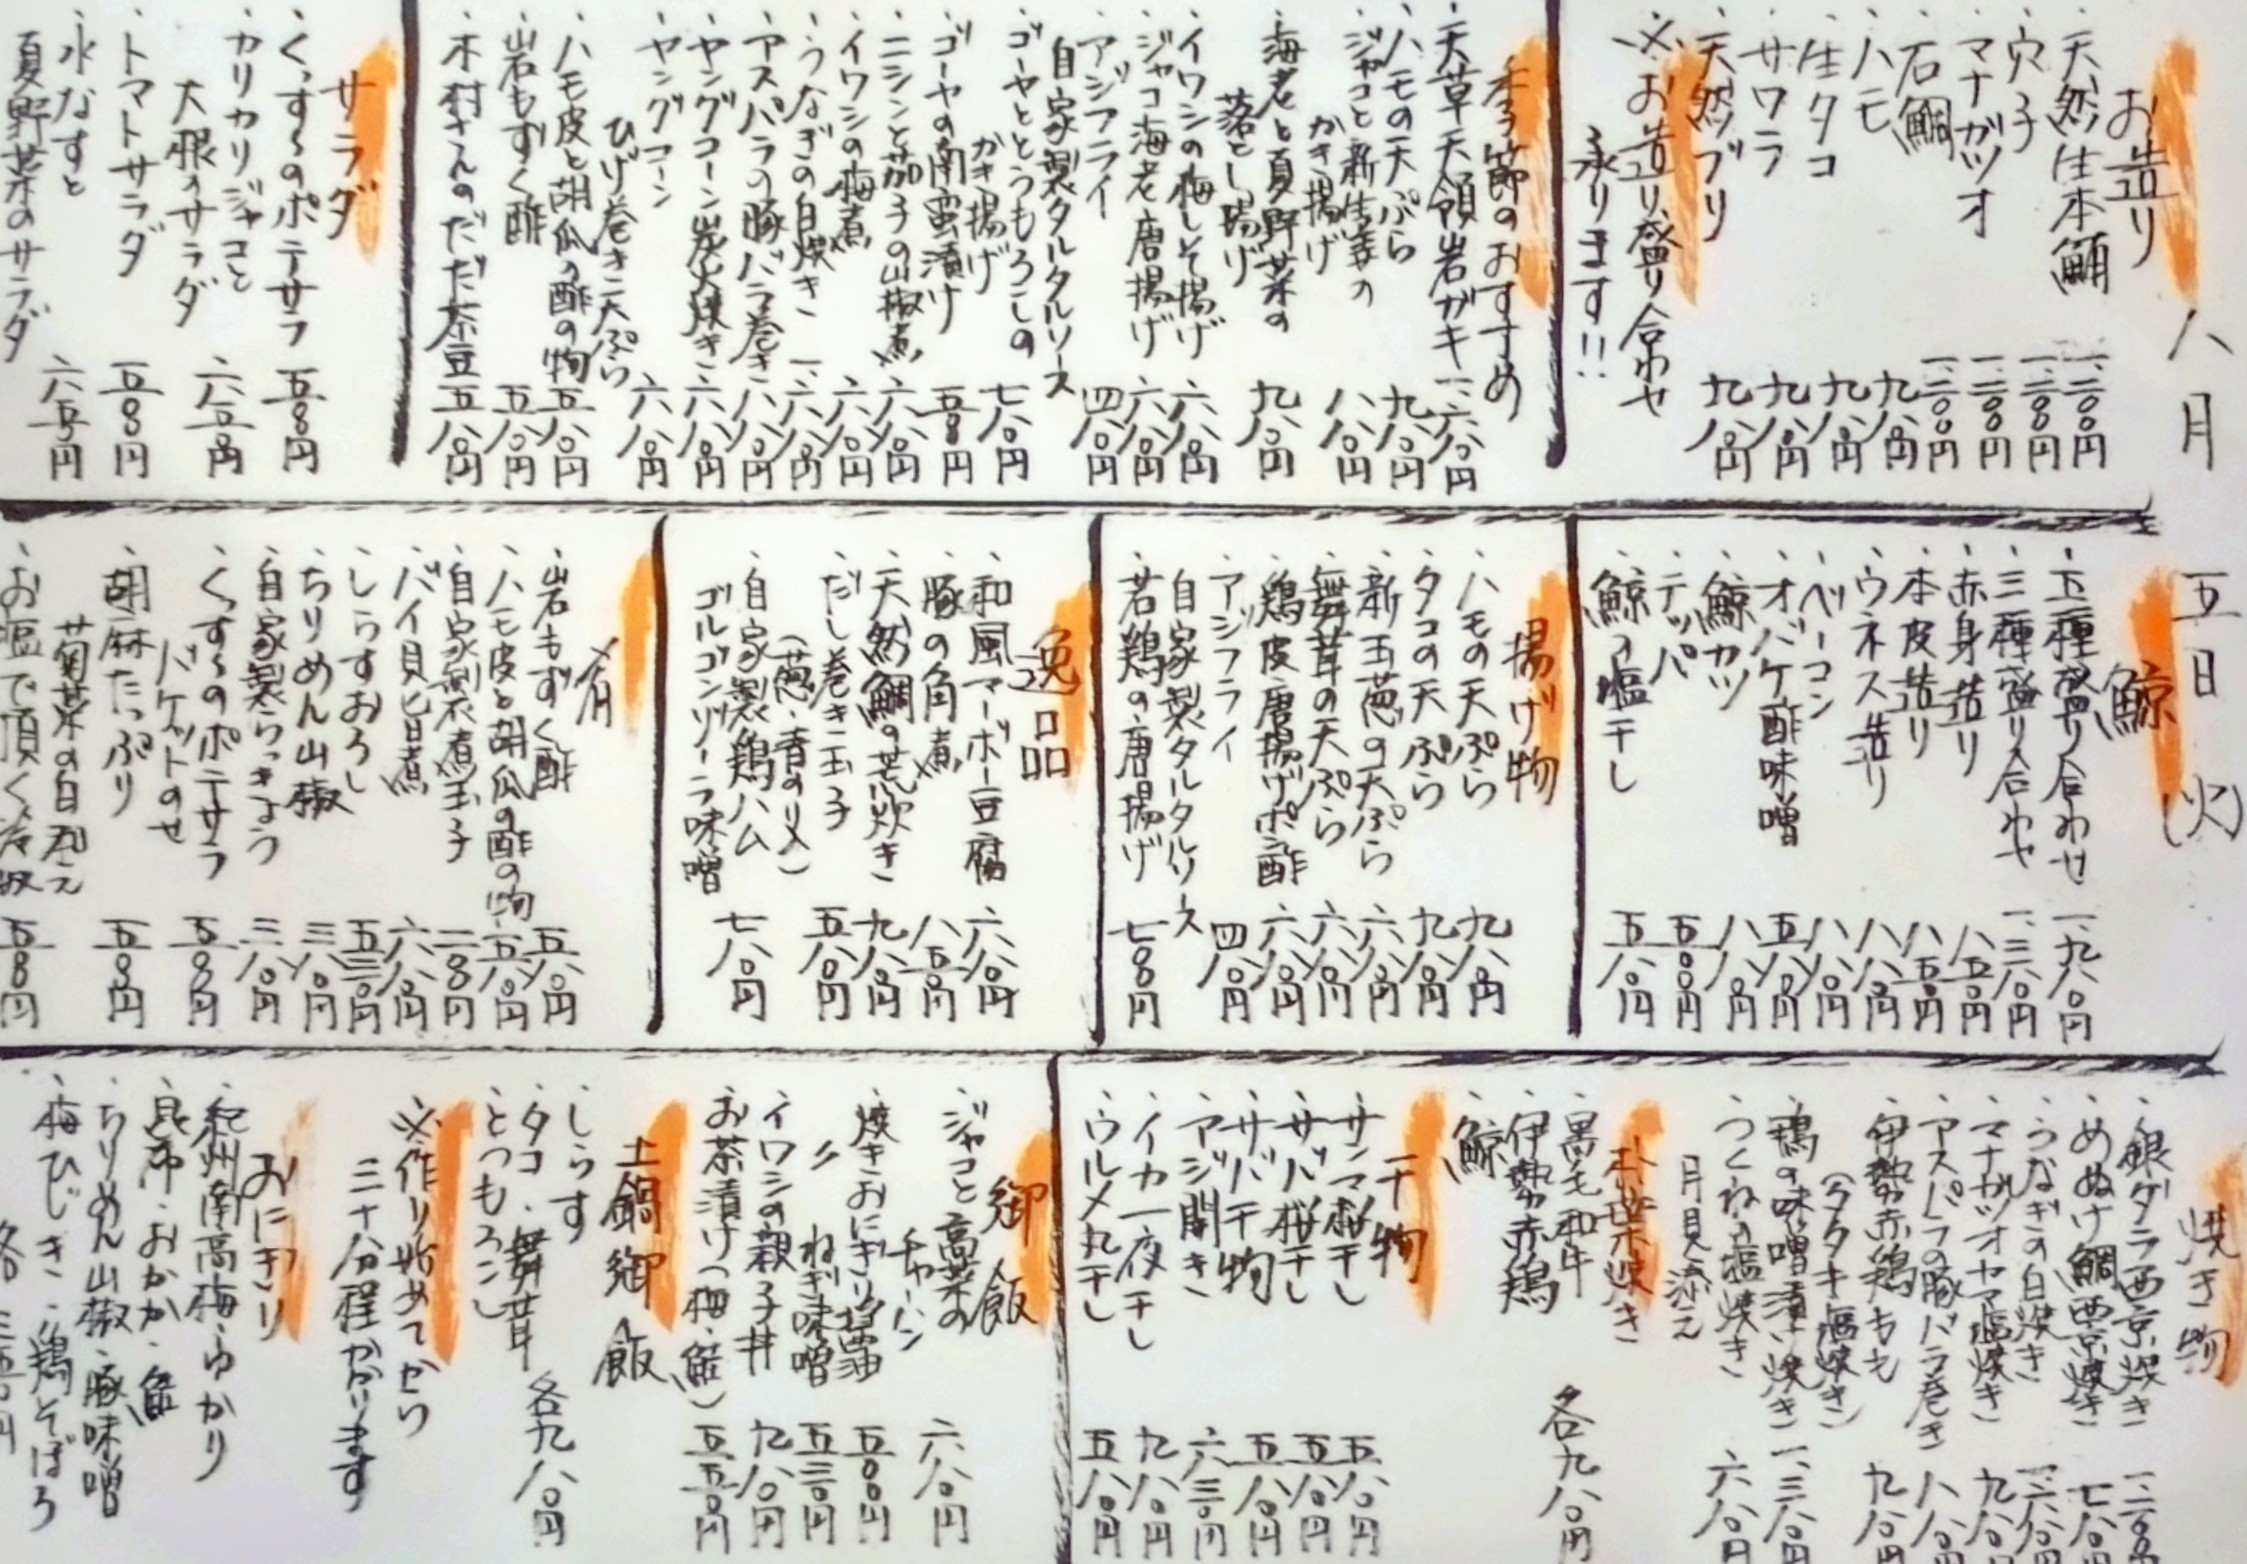 八月五日(火)
お造り
・天然生本鮪 一、二〇〇円
・穴子 一、二〇〇円
・マナガツオ 一、二〇〇円
・石鯛 一、二〇〇円
・ハモ 九八〇円
・生タコ 九八〇円
・サワラ 九八〇円
・天然ブリ 九八〇円
※お造り盛り合わせ
承ります!!
季節のおすすめ
・天草天領岩ガキ 一、六八〇円
・ハモの天ぷら 九八〇円
・ジャコと新生姜の
かき揚げ 八八〇円
・海老と夏野菜の
落とし揚げ 九八〇円
・イワシの梅しそ揚げ 六八〇円
・ジャコ海老唐揚げ 六八〇円
・アジフライ 四八〇円
自家製タルタルソース
・ゴーヤととうもろこしの
かき揚げ 七八〇円
・ゴーヤの南蛮漬け 五八〇円
・ニシンと茄子の山椒煮 六八〇円
・イワシの梅煮 六八〇円
・うなぎの白焼き 一、六八〇円
・アスパラの豚バラ巻き 八八〇円
・ヤングコーン炭火焼き 六八〇円
・ヤングコーン
ひげ巻き天ぷら 六八〇円
・ハモ皮と胡瓜の酢の物 五八〇円
・岩もずく酢 五八〇円
・木村さんのだだ茶豆 五八〇円
サラダ
・くっすぅのポテサラ 五八〇円
・カリカリジャコと
大根のサラダ 六五〇円
・トマトサラダ 五八〇円
・水なすと
夏野菜のサラダ 六五〇円
鯨
・五種盛り合わせ 一、九八〇円
・三種盛り合わせ 一、三八〇円
・赤身造り 八五〇円
・本皮造り 八五〇円
・ウネス造り 八八〇円
・ベーコン 八八〇円
・オバケ酢味噌 五八〇円
・鯨カツ 八八〇円
・テッパ 五八〇円
・鯨の塩干し 五八〇円
揚げ物
・ハモの天ぷら 九八〇円
・タコの天ぷら 九八〇円
・新玉葱の天ぷら 六八〇円
・舞茸の天ぷら 六八〇円
・鶏皮唐揚げポン酢 六八〇円
・アジフライ 四八〇円
自家製タルタルソース
・若鶏の唐揚げ 七八〇円
逸品
・和風マーボー豆腐 六八〇円
・豚の角煮 八五〇円
・天然鯛の荒炊き 九八〇円
・だし巻き玉子 五八〇円
(葱・青のり〆)
・自家製鶏ハム
ゴルゴンゾーラ味噌 七八〇円
肴
・岩もずく酢 五八〇円
・ハモ皮と胡瓜の酢の物 五八〇円
・自家製煮玉子 二八〇円
・バイ貝旨煮 六八〇円
・しらすおろし 五三〇円
・ちりめん山椒 三八〇円
・自家製らっきょう 三八〇円
・くっすぅのポテサラ
バケットのせ 五八〇円
・胡麻たっぷり
菊菜の白和え 五八〇円
・お塩で頂く冷奴 五八〇円
焼き物
・銀ダラ西京焼き
・めぬけ鯛西京焼き 七八〇
・うなぎの白焼き 一、六八〇
・マナガツオカマ塩焼き 九八〇
・アスパラの豚バラ巻き 八八〇円
・伊勢赤鶏もも 九八〇円
(タタキ・塩焼き)
・鶏の味噌漬け焼き 一、三八〇円
・つくねの塩焼き 六八〇円
月見添え
朴葉焼き
・黒毛和牛
・伊勢赤鶏
・鯨
各九八〇円
干物
・サンマ桜干し 五八〇円
・サバ桜干し 五八〇円
・サバ干物 五八〇円
・アジ開き 六三〇円
・イカ一夜干し 九八〇円
・ウルメ丸干し 五八〇円
御飯
・ジャコと高菜の
チャーハン 六八〇円
・焼きおにぎり 醤油 五〇〇円
〃 ねぎ味噌 五三〇円
・イワシの親子丼 九八〇円
・お茶漬け(梅・鮭) 五五〇円
土鍋御飯
・しらす
・タコ・舞茸
・とうもろこし
各九八〇円
※作り始めてから
三十分程かかります
おにぎり
・紀州南高梅・ゆかり
・昆布・おかか・鮭
・ちりめん山椒・豚味噌
・梅ひじき・鶏そぼろ